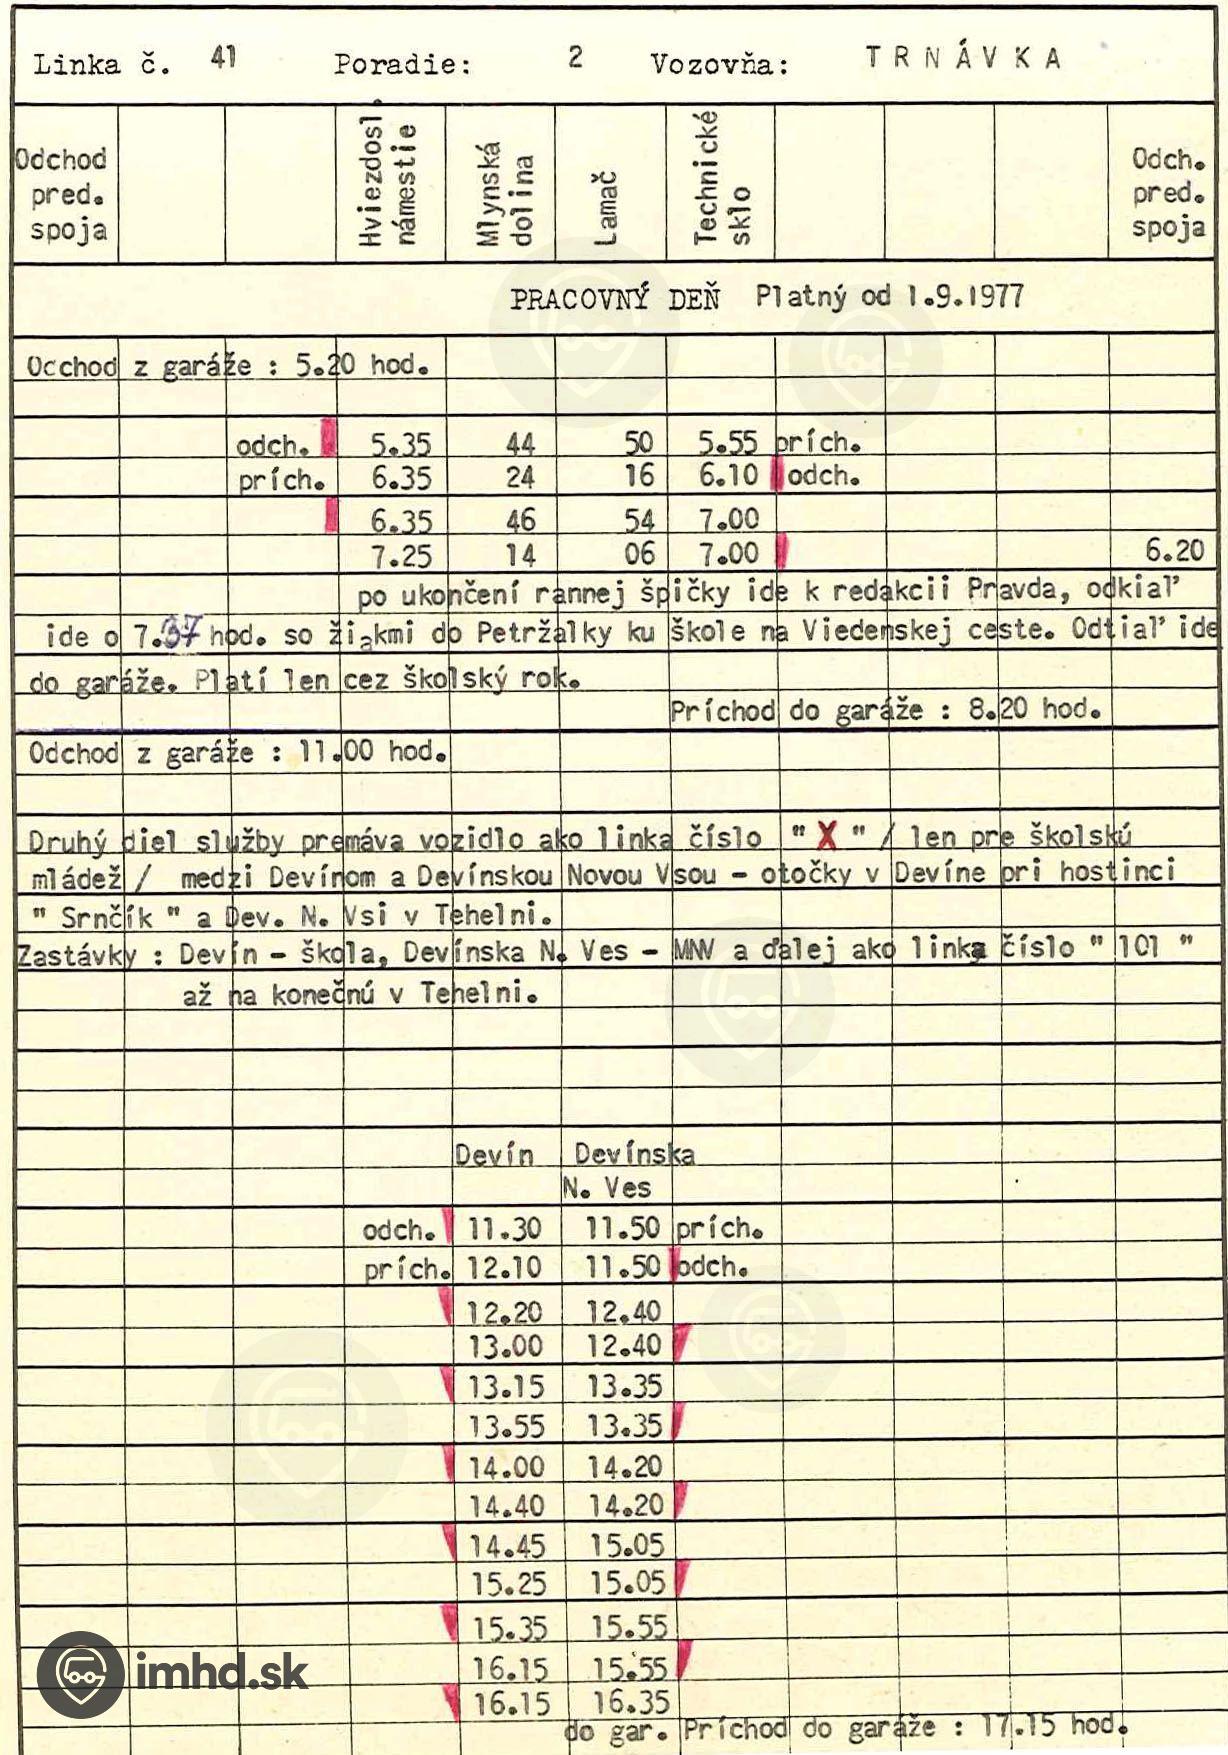 Linka č. 41 Poradie: 2 Vozovňa: TRNÁVKA
Odchod pred. spoja Hviezdosl. námestie Mlynská dolina Lamač Technické sklo Odch. pred. spoja
PRACOVNÝ DEŇ Platný od 1.9.1977
Occhod z garáže : 5.20 hod.
odch. 5.35 44 50 5.55 prích.
prích. 6.35 24 16 6.10 odch.
6.35 46 54 7.00
7.25 14 06 7.00 6.20
po ukončení rannej špičky ide k redakcii Pravda, odkiaľ
ide o 7.37 hod. so žiakmi do Petržalky ku škole na Viedenskej ceste. Odtiaľ ide
do garáže. Platí len cez školský rok.
Príchod do garáže : 8.20 hod.
Odchod z garáže : 11.00 hod.
Druhý diel služby premáva vozidlo ako linka číslo " X " / len pre školskú
mládež / medzi Devínom a Devínskou Novou Vsou - otočky v Devíne pri hostinci
" Srnčík " a Dev. N. Vsi v Tehelni.
Zastávky : Devín - škola, Devínska N. Ves - MNV a ďalej ako linka číslo " 101 "
až na konečnú v Tehelni.
Devín Devínska
N. Ves
odch. 11.30 11.50 prích.
prích. 12.10 11.50 odch.
12.20 12.40
13.00 12.40
13.15 13.35
13.55 13.35
14.00 14.20
14.40 14.20
14.45 15.05
15.25 15.05
15.35 15.55
16.15 15.55
16.15 16.35
do gar. Príchod do garáže : 17.15 hod.
imhd.sk